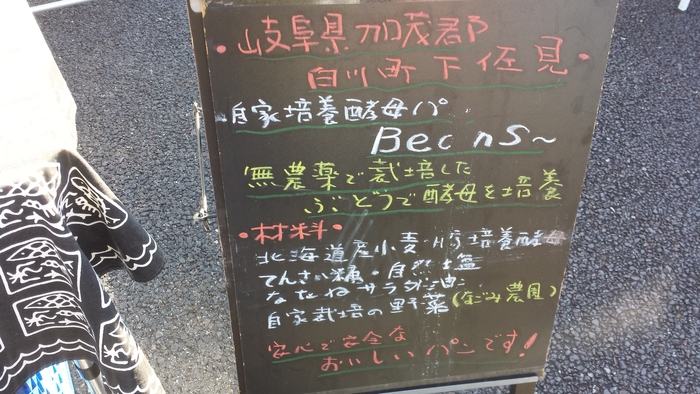 ・岐阜県加茂郡
白川町下佐見・
自家培養酵母パ
Bec nS~
無農薬で栽培した
ぶどうで酵母を培養
・材料・
北海道産小麦・培養酵母
てんさい糖・自然塩
なたねサラダ油
自家栽培の野菜(ごみ農園)
安心で安全な
おいしいパンです!